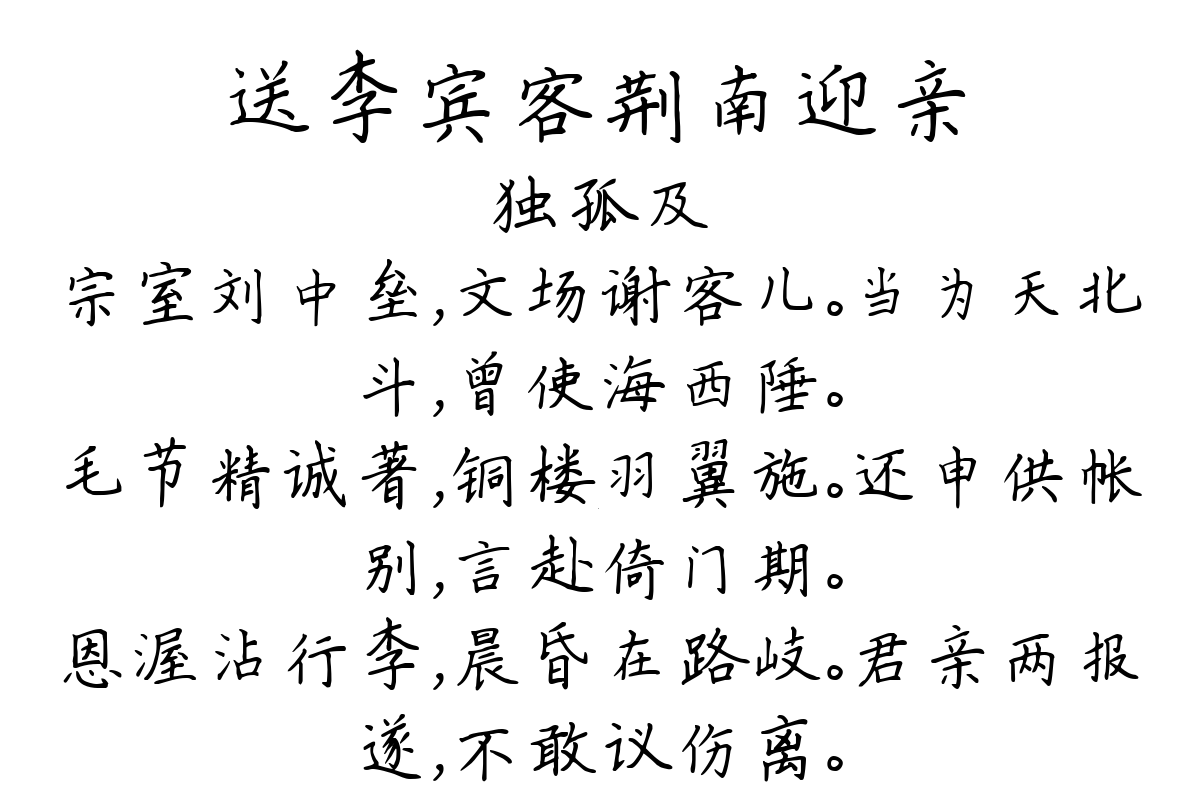 送李宾客荆南迎亲
独孤及
宗室刘中垒,文场谢客儿。当为天北
斗,曾使海西陲。
毛节精诚著,铜楼羽翼施。还申供帐
别,言赴倚门期。
恩渥沾行李,晨昏在路岐。君亲两报
遂,不敢议伤离。